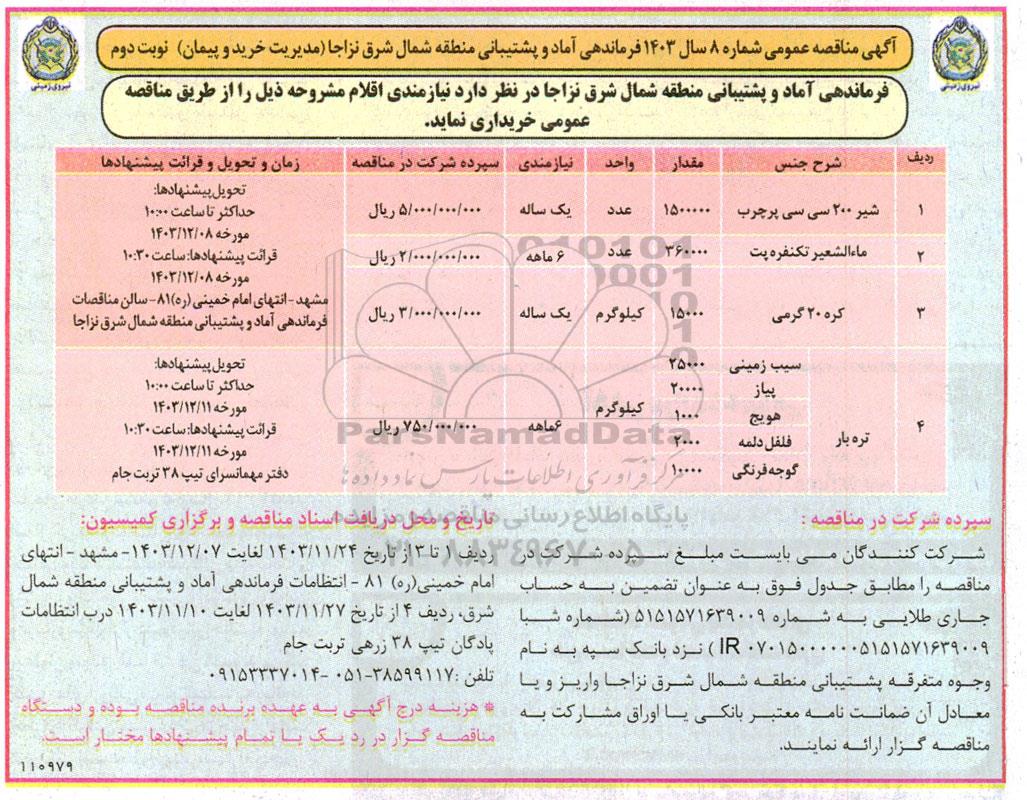 آگهی مناقصه عمومی شماره ۸ سال ۱۴۰۳ فرماندهی آماد و پشتیبانی منطقه شمال شرق نزاجا (مدیریت خرید و پیمان) نوبت دوم
نیروی زمینی
نیروی زمینی
فرماندهی آماد و پشتیبانی منطقه شمال شرق نزاجا در نظر دارد نیازمندی اقلام مشروحه ذیل را از طریق مناقصه
عمومی خریداری نماید.
ردیف شرح جنس مقدار واحد نیازمندی سپرده شرکت در مناقصه زمان و تحویل و قرائت پیشنهادها
۱ شیر ۲۰۰ سی سی پرچرب ۱۵۰۰۰۰۰ عدد یک ساله ۵/۰۰۰/۰۰۰/۰۰۰ ریال
۲ ماءالشعیر تکنفره پت ۳۶۰۰۰۰ عدد ۶ ماهه ۲/۰۰۰/۰۰۰/۰۰۰ ریال
۳ کره ۲۰ گرمی ۱۵۰۰۰ کیلوگرم یک ساله ۳/۰۰۰/۰۰۰/۰۰۰ ریال
تحویل پیشنهادها:
حداکثر تا ساعت ۱۰:۰۰
مورخه ۱۴۰۳/۱۲/۰۸
قرائت پیشنهادها: ساعت ۱۰:۳۰
مورخه ۱۴۰۳/۱۲/۰۸
مشهد - انتهای امام خمینی (ره) ۸۱ - سالن مناقصات
فرماندهی آماد و پشتیبانی منطقه شمال شرق نزاجا
۴ تره بار کیلوگرم ۶ماهه ۷۵۰/۰۰۰/۰۰۰ ریال
سیب زمینی ۲۵۰۰۰
پیاز ۲۰۰۰۰
هویج ۱۰۰۰
فلفل دلمه ۲۰۰۰
گوجه فرنگی ۱۰۰۰۰
تحویل پیشنهادها:
حداکثر تا ساعت ۱۰:۰۰
مورخه ۱۴۰۳/۱۲/۱۱
قرائت پیشنهادها: ساعت ۱۰:۳۰
مورخه ۱۴۰۳/۱۲/۱۱
دفتر مهمانسرای تیپ ۳۸ تربت جام
ParsNamadData
مرکز فرآوری اطلاعات پارس نماد داده ها
پایگاه اطلاع رسانی مناقصه و مزایده
سپرده شرکت در مناقصه :
شرکت کنندگان می بایست مبلغ سپرده شرکت در
مناقصه را مطابق جدول فوق به عنوان تضمین به حساب
جاری طلایی به شماره ۵۱۵۱۵۷۱۶۳۹۰۰۹ (شماره شبا
IR ۰۷۰۱۵۰۰۰۰۰۰۵۱۵۱۵۷۱۶۳۹۰۰۹) نزد بانک سپه به نام
وجوه متفرقه پشتیبانی منطقه شمال شرق نزاجا واریز و یا
معادل آن ضمانت نامه معتبر بانکی یا اوراق مشارکت به
مناقصه گزار ارائه نمایند.
تاریخ و محل دریافت اسناد مناقصه و برگزاری کمیسیون:
ردیف ۱ تا ۳ از تاریخ ۱۴۰۳/۱۱/۲۴ لغایت ۱۴۰۳/۱۲/۰۷- مشهد - انتهای
امام خمینی(ره) ۸۱ - انتظامات فرماندهی آماد و پشتیبانی منطقه شمال
شرق، ردیف ۴ از تاریخ ۱۴۰۳/۱۱/۲۷ لغایت ۱۴۰۳/۱۱/۱۰ درب انتظامات
پادگان تیپ ۳۸ زرهی تربت جام
تلفن :۳۸۵۹۹۱۱۷-۰۵۱ - ۰۹۱۵۳۳۳۷۰۱۴
* هزینه درج آگهی به عهده برنده مناقصه بوده و دستگاه
مناقصه گزار در رد یک یا تمام پیشنهادها مختار است.
۱۱۰۹۷۹